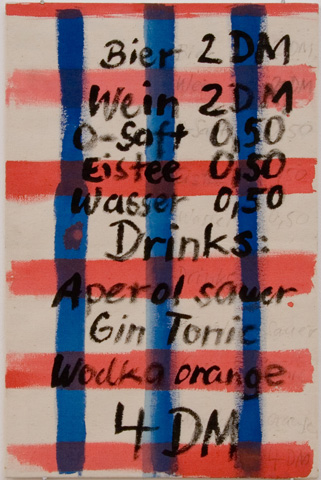 Bier 2 DM
Wein 2 DM
O-Saft 0,50
Eistee 0,50
Wasser 0,50
Drinks:
Aperol sauer
Gin Tonic
Wodka orange
4 DM